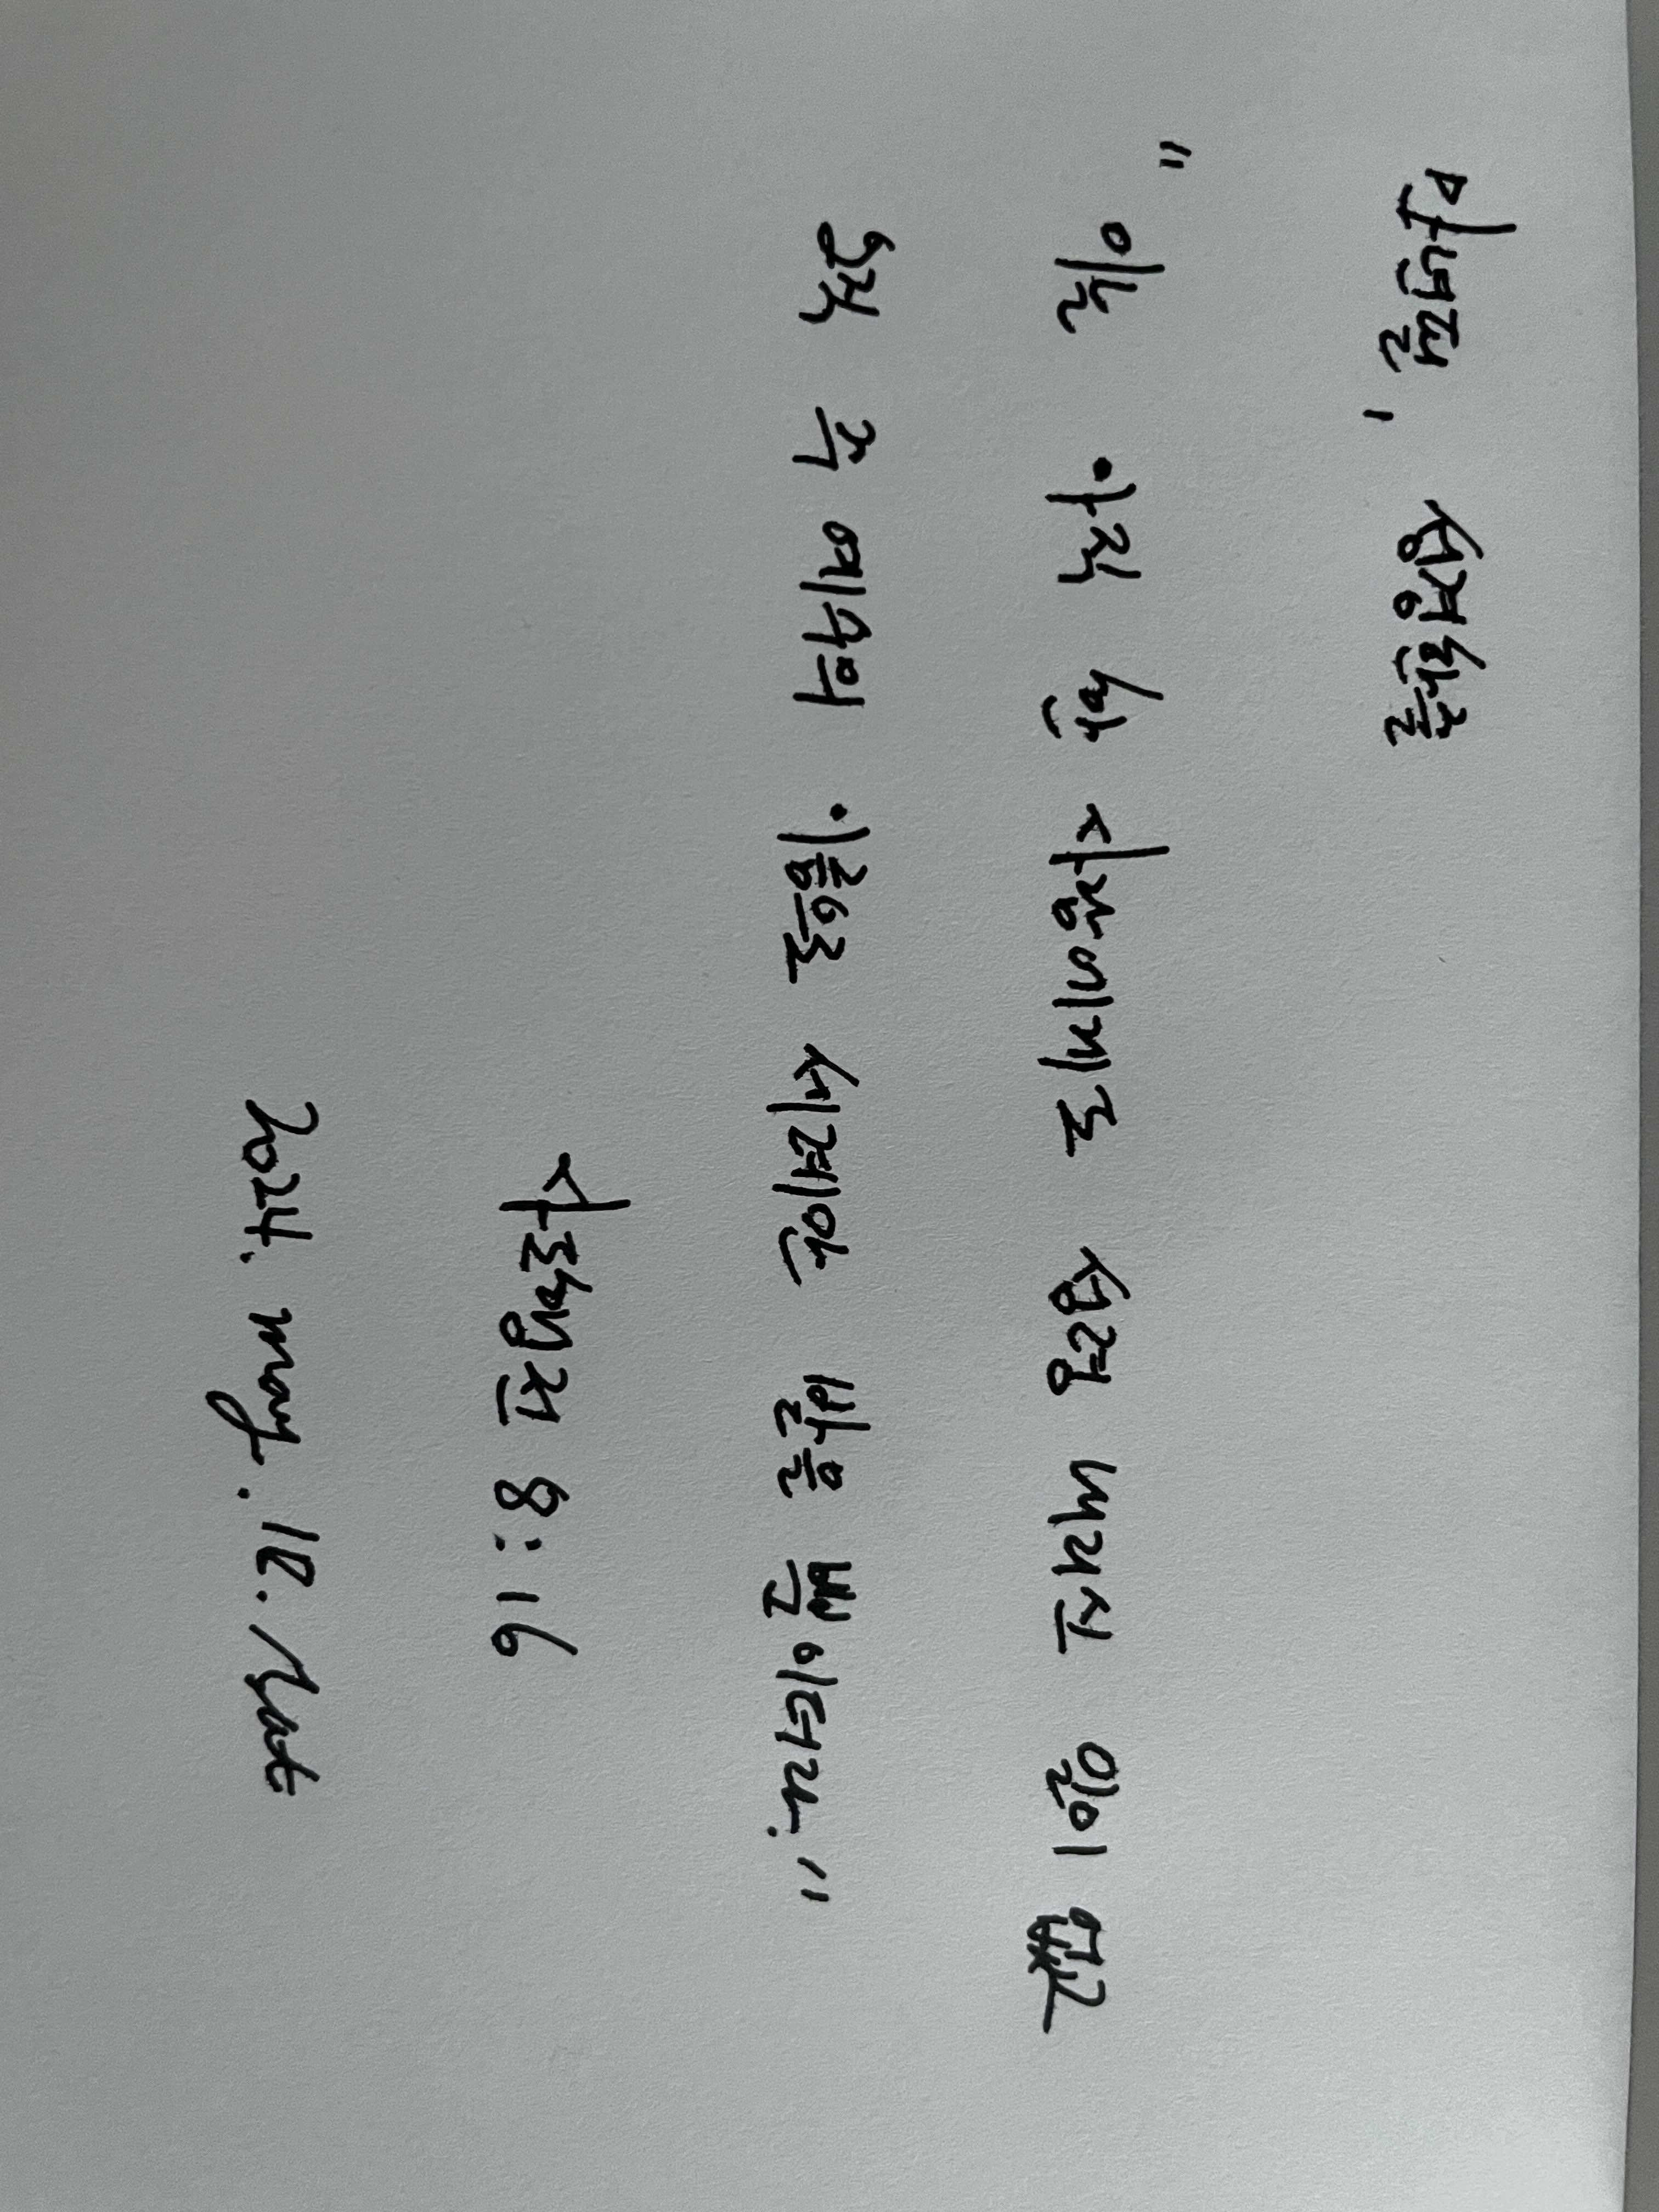 만년필, 성경한줄
"이는 아직 한 사람에게도 성령 내리신 일이 없고
오직 주 예수의 이름으로 세례만 받을 뿐이더라."
사도행전 8:16
2024. may. 18. Sat